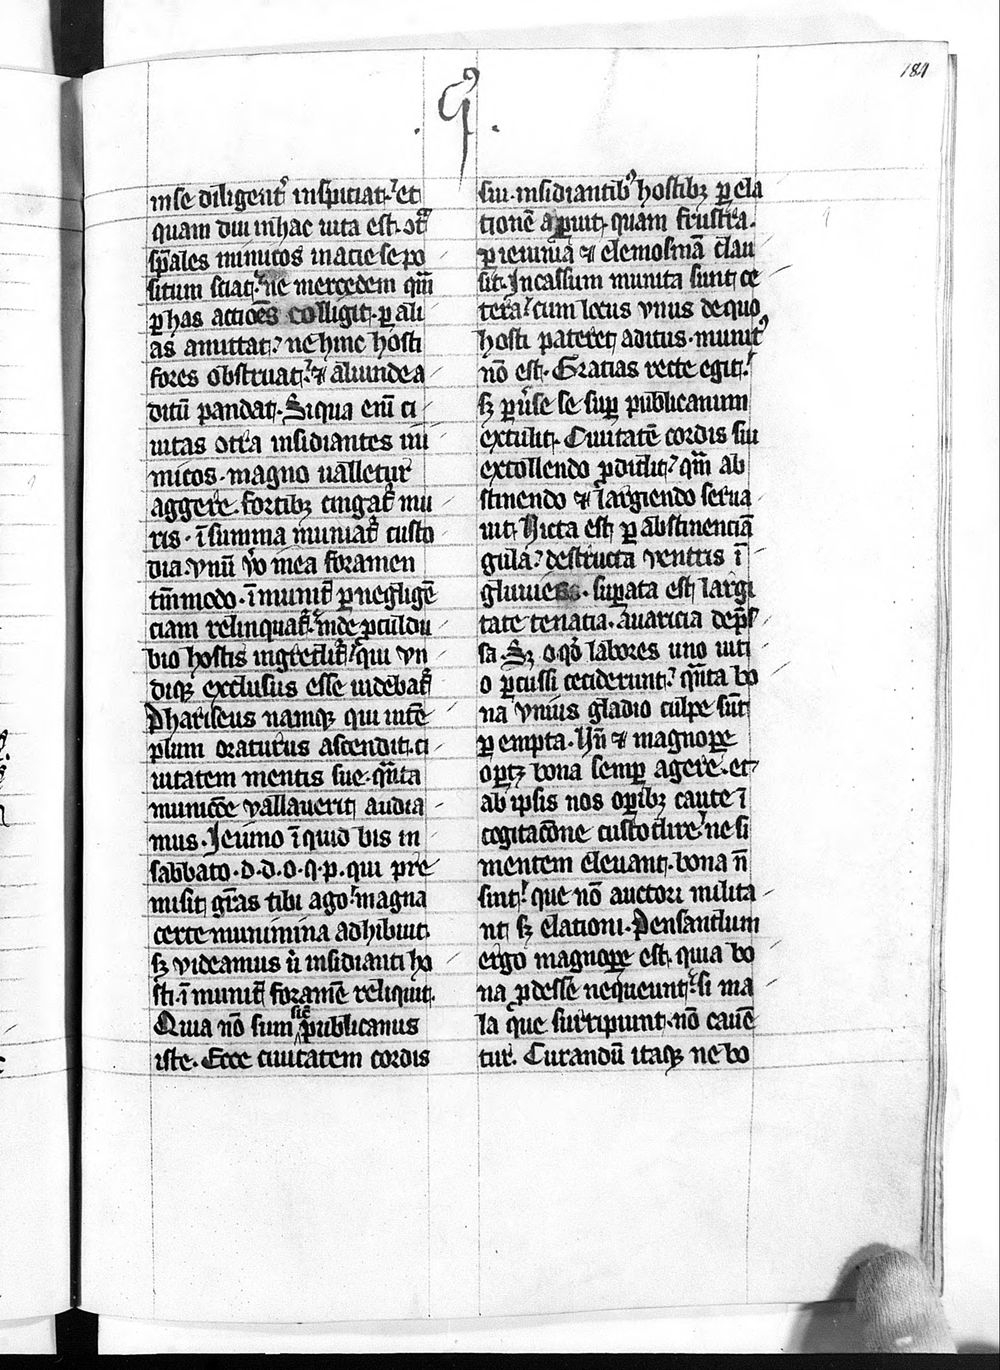 184
.ꝯ.
inse diligent᷑ inspiciat.᷑ et
quam diu inhac uita est.ꝯt᷑
sp̄ales inimicos inacie se po
situm sciat.᷑ ne mercedem qm̄
ꝑ has actiōes colligit. ꝑ ali
as amittat.᷑ ne hinc hosti
fores obstruat.᷑ ⁊ aliunde a
ditū pandat. Siqua eni᷑ ci
uitas ꝯt᷑a insidiantes ini
micos. magno ualletur
aggere. fortibꝫ cingat᷑ mu
ris. īsumma muniat᷑ custo
dia. vnū v̊o inea foramen
tm̄modo. īmunit᷑ ꝑ negligē
ciam relinquat᷑. inde ꝓculdu
bio hostis ingredit᷑.᷑ qui vn
diqꝫ exclusus esse uidebat᷑
Phariseus namqꝫ qui intē
plum oraturus ascendit. ci
uitatem mentis sue. qn̄ta
municōe vallauerit audia
mus. Ieiuno īquid bis in
sabbato. d.d.o.q.p. qui pre
misit gr̄as tibi ago.᷑ magna
certe munimina adhibuit.
sꝫ videamus u̇ insidianti ho
sti. īmunit᷑ foramē reliquit.
Quia nō sum sic̄ publicanus
iste. Ecce ciuitatem cordis
sui. insidiantibꝰ hostibꝫ ꝑ ela
tionē aperuit. quam frustra.
ꝑ ieiuniā ⁊ elemosinā clau
sit. Incassum munita sunt ce
tera.᷑ cum locus vnus de quo
hosti pateret aditus. munitꝰ
nō est. Gratias recte egit.᷑
sꝫ ꝑuse se suꝑ publicanum
extulit. Ciuitatē cordis sui
extollendo ꝑdidit.᷑ qm̄ ab
stinendo ⁊ largiendo serua
uit. Victa est ꝑ abstinenciā
gula.᷑ destructa ventris ī
gluuies. suꝑata est largi
tate tenatia. auaricia dep̄s
sa. Sꝫ o qd̄ labores uno uiti
o ꝑcussi ceciderunt.᷑ qn̄ta bo
na vnius gladio culpe sūt
ꝑempta. Vn̄ ⁊ magnopꝑe
oportꝫ bona semꝑ agere. et
ab ipsis nos opībꝫ caute ī
cogitacōne custodire.᷑ ne si
mentem eleuant. bona n̄
sint.᷑ que nō auctori milita
nt sꝫ elationi. Pensandum
ergo magnopꝑe est. quia bo
na ꝓdesse nequeunt.᷑ si ma
la que surripiunt. nō cauē
tur. Curandū itaqꝫ ne bo